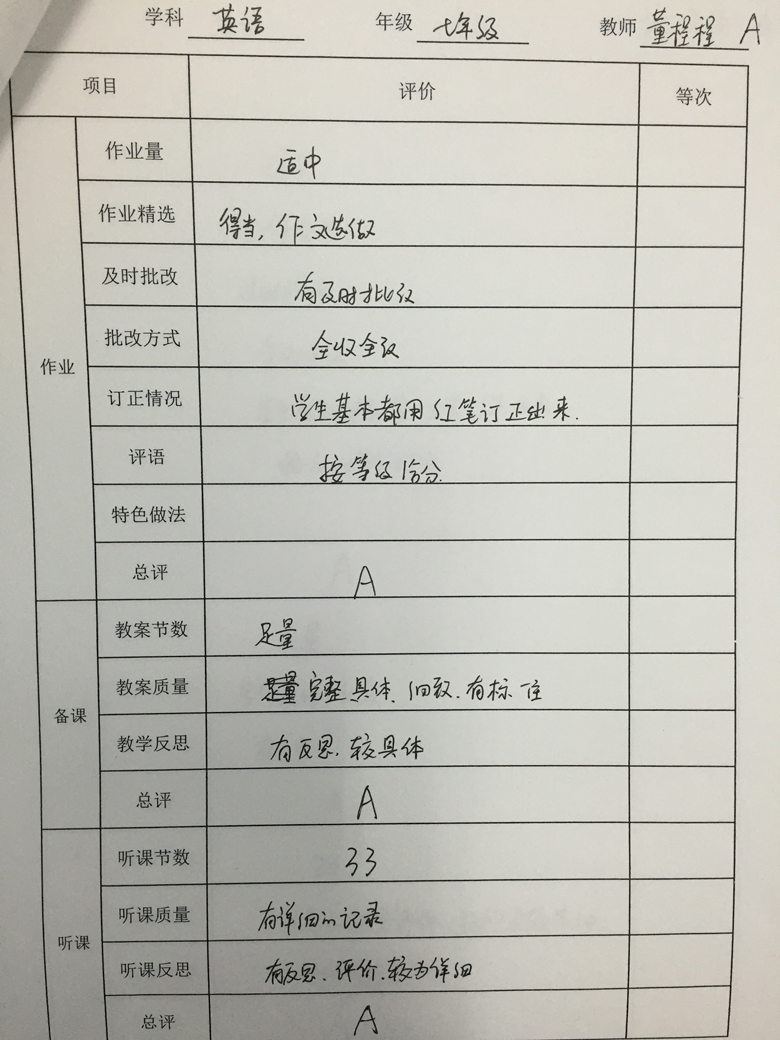 学科 英语 年级 七年级 教师 董程程 A
项目 评价 等次
作业
作业量 适中
作业精选 得当，作文选做
及时批改 有及时批改
批改方式 全收全改
订正情况 学生基本都用红笔订正出来.
评语 按等级给分.
特色做法
总评 A
备课
教案节数 足量
教案质量 完整 具体、细致.有标注
教学反思 有反思.较具体
总评 A
听课
听课节数 33
听课质量 有详细的记录
听课反思 有反思.评价.较为详细
总评 A